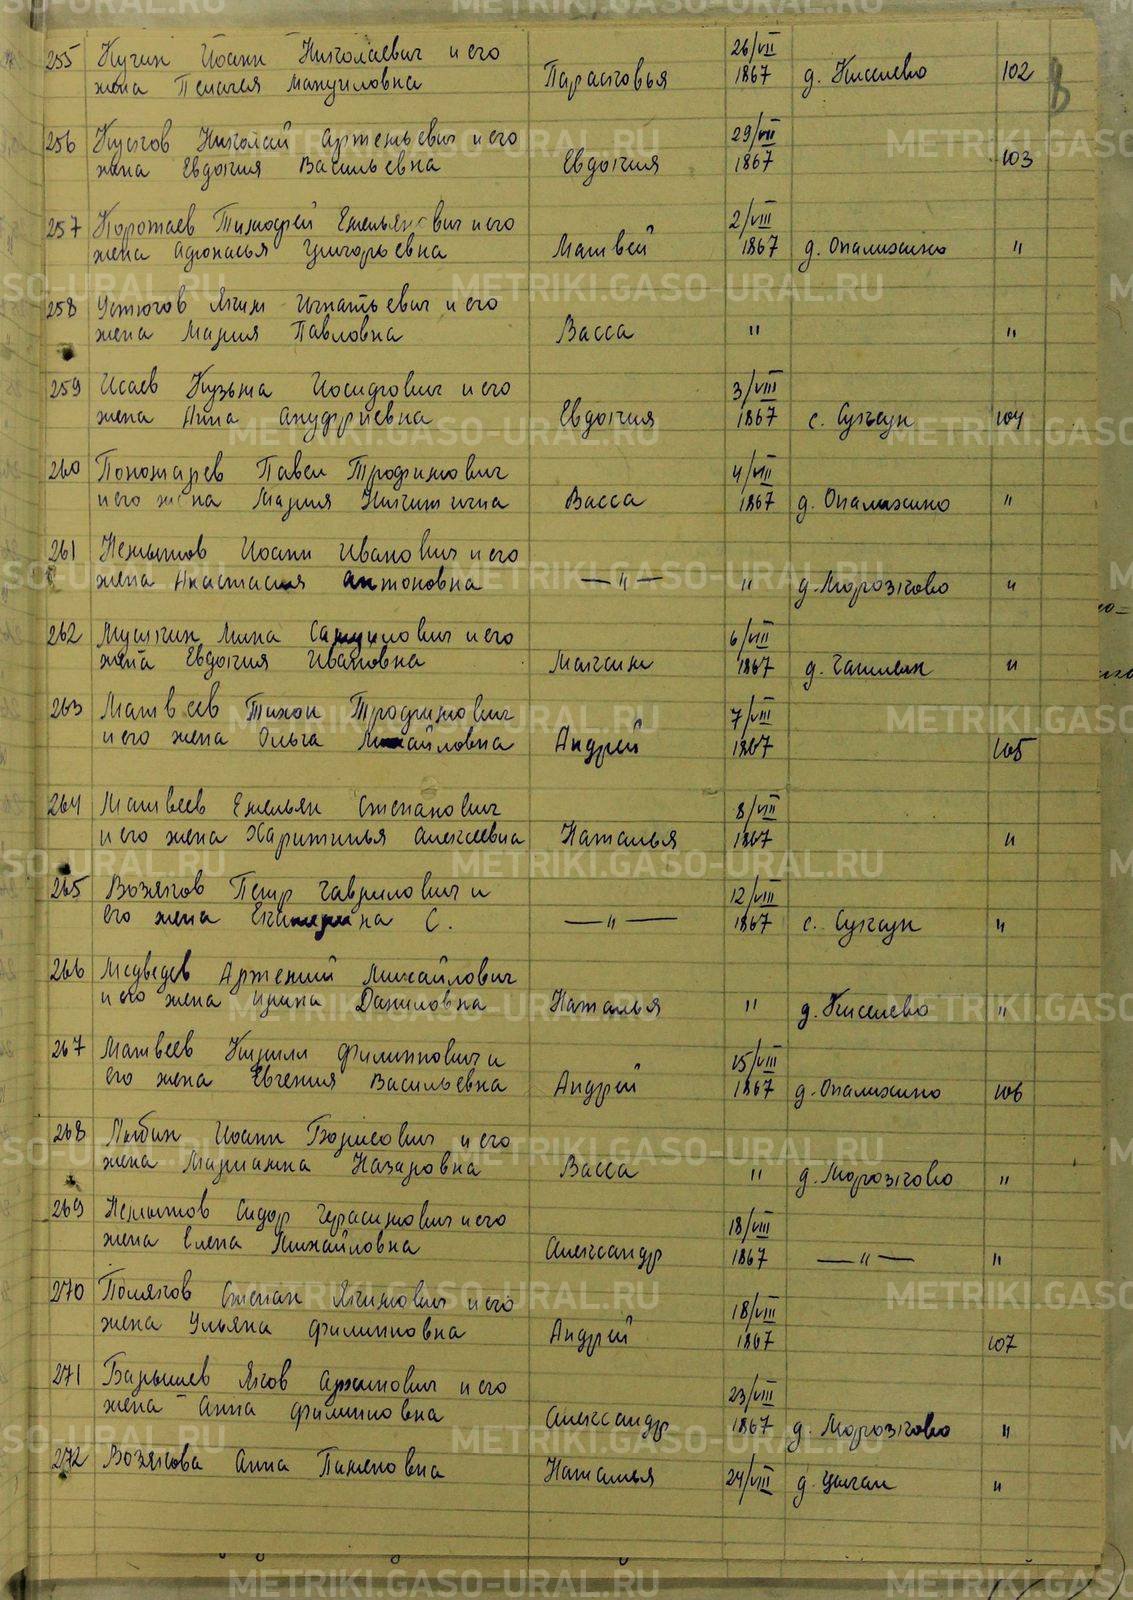 255 Кучин Иоанн Николаевич и его
жена Пелагея Мануиловна Парасковья 26/VII 1867 д. Киселево 102
256 Николай Артемьевич и его
жена Евдокия Васильевна Евдокия 29/VII 1867 103
257 Коротаев Тимофей Емельянович и его
жена Афонасья Григорьевна Матвей 2/VIII 1867 д. Опалихино "
258 Устюгов Яким Игнатьевич и его
жена Мария Павловна Васса " "
259 Исаев Кузьма Иосифович и его
жена Анна Ануфриевна Евдокия 3/VIII 1867 с. 104
260 Пономарев Павел Трофимович
и его жена Мария Никитична Васса 4/VIII 1867 д. Опалихино "
261 Немытов Иоанн Иванович и его
жена Анастасия Антоновна —"— " д. Морозково "
262 Мушкин Мина Самуилович и его
жена Евдокия Ивановна Максим 6/VIII 1867 д. "
263 Матвеев Тихон Трофимович
и его жена Ольга Михайловна Андрей 7/VIII 1867 105
264 Матвеев Емельян Степанович
и его жена Харитинья Алексеевна Наталья 8/VIII 1867 "
265 Возяков Петр Гаврилович и
его жена Екатерина С. —"— 12/VIII 1867 с. "
266 Медведев Артемий Михайлович
и его жена Ирина Даниловна Наталья " д. Киселево "
267 Матвеев Кирилл Филиппович и
его жена Евгения Васильевна Андрей 15/VIII 1867 д. Опалихино 106
268 Иоанн Борисович и его
жена Марианна Назаровна Васса " д. Морозково "
269 Немытов Сидор Герасимович и его
жена Елена Михайловна Александр 18/VIII 1867 —"— "
270 Поляков Степан Якимович и его
жена Ульяна Филипповна Андрей 18/VIII 1867 107
271 Барышев Яков Архипович и его
жена Анна Филипповна Александр 23/VIII 1867 д. Морозково "
272 Возякова Анна Пименовна Наталья 24/VIII д. Цыган "